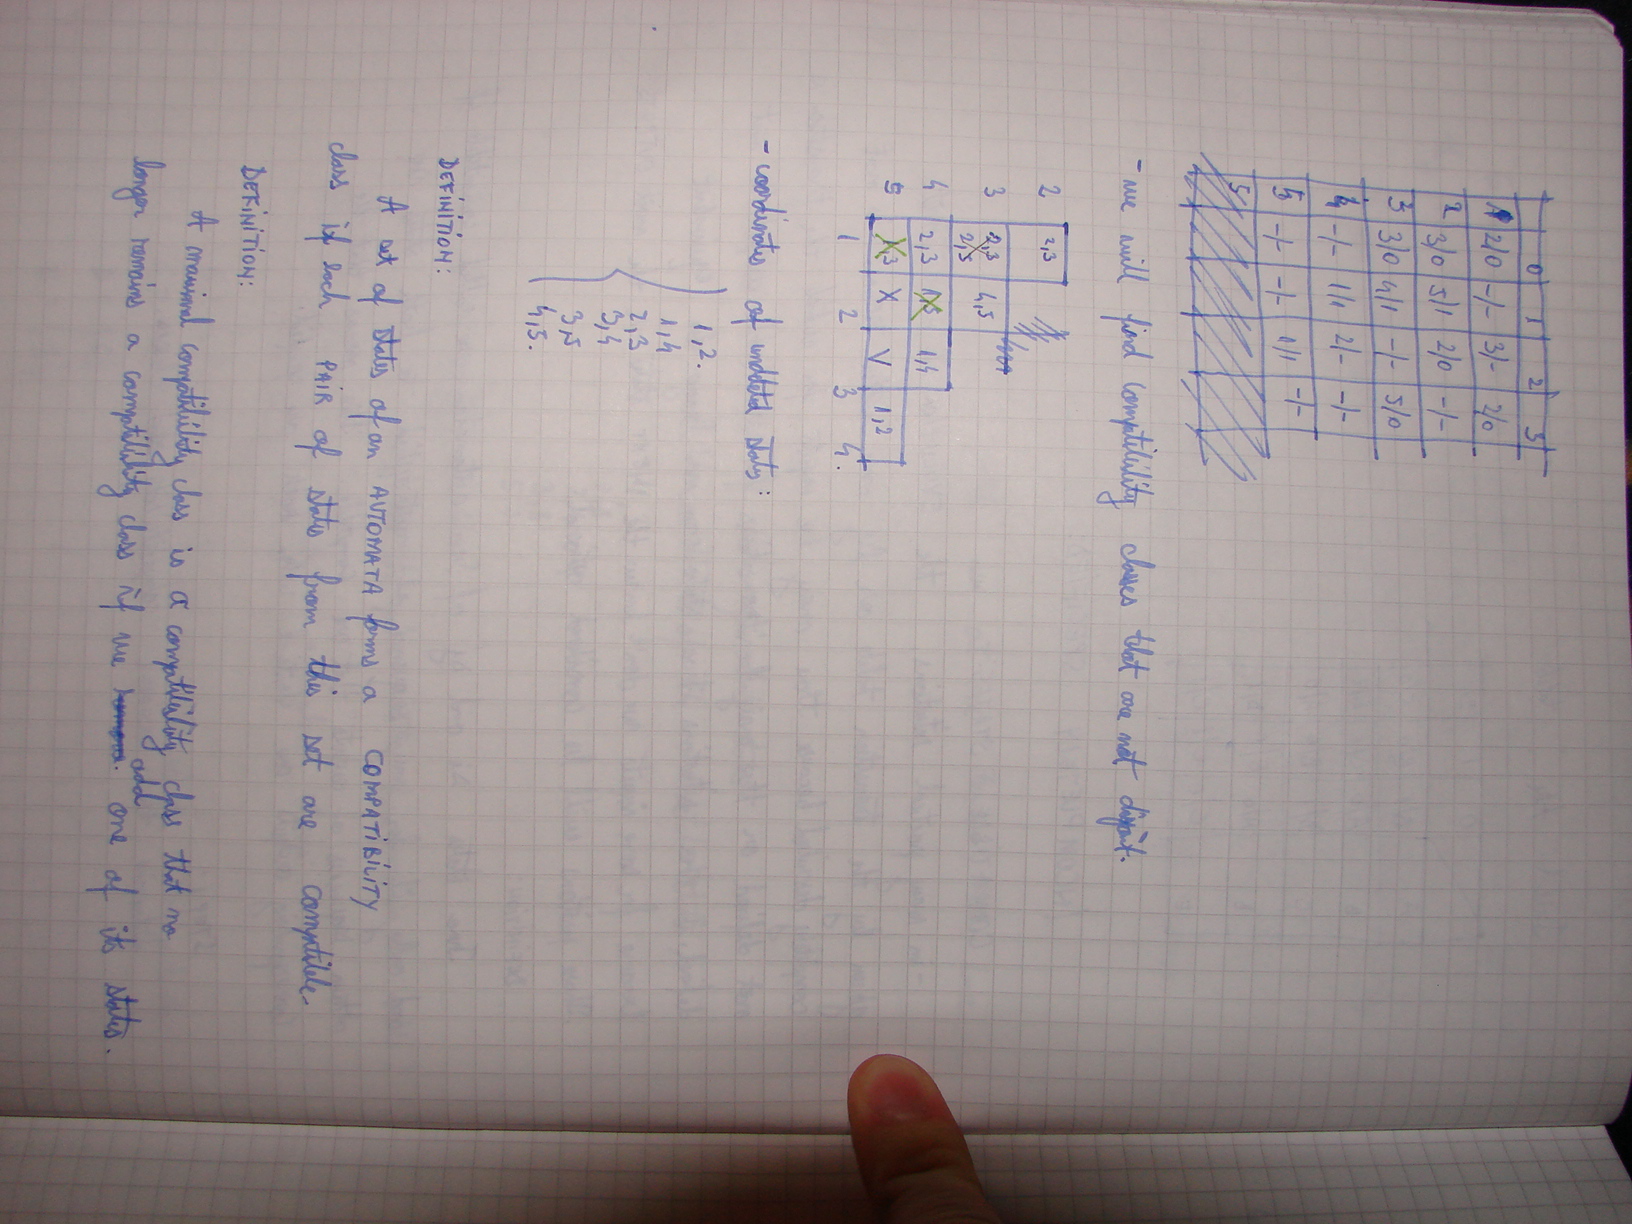 0 1 2 3
1 2/0 -/- 3/- 2/0
2 3/0 5/1 2/0 -/-
3 3/0 4/1 -/- 5/0
4 -/- 1/1 2/- -/-
5 -/- -/- 1/1 -/-
5
- we will find compatibility classes that are not disjoint.
2 2,3
3 2,3 4,5
2,5
4 2,3 1,5 1,4
5 1,3 X V 1,2
1 2 3 4.
- coordinates of undeleted states:
1,2.
1,4
2,3
3,4
3,5
4,5.
DEFINITION:
A set of states of an AUTOMATA forms a COMPATIBILITY
class if each PAIR of states from this set are compatible.
DEFINITION:
A maximal compatibility class is a compatibility class that no
longer remains a compatibility class if we add one of its states.